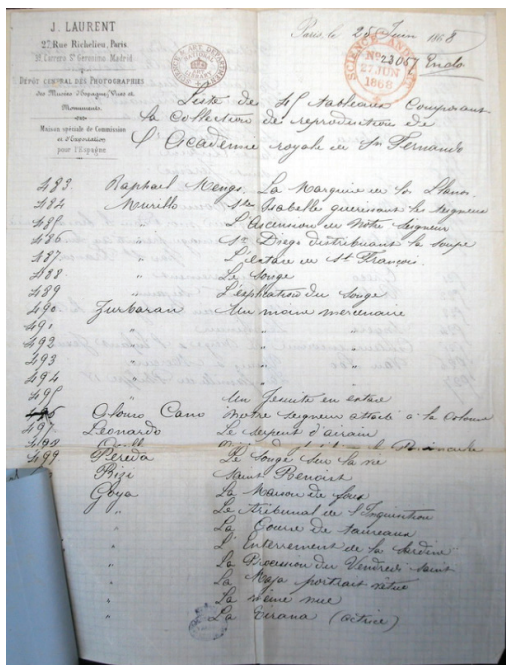 J. LAURENT
27. Rue Richelieu, Paris.
39. Carrera Sn Geronimo, Madrid.
DÉPÔT GÉNÉRAL DES PHOTOGRAPHIES
des Musées d'Espagne, Vues et
Monuments.
Maison spéciale de Commission
et d'Exportation
pour l'Espagne
Paris, le 25 Juin 1868
SCIENCE AND
No 23057
27 JUN
1868
Liste de 45 tableaux Composant
la Collection de reproduction de
l'Academie royale de Sn Fernando
483. Raphael Mengs. La Marquise de los Llanos.
484 Murillo Ste Isabelle guerissant les teigneux
485 " L'Ascension de Notre Seigneur
486 " St Diego distribuant la soupe
487. " L'extase de St François.
488. " Le Songe
489 " L'explication du Songe
490 Zurbaran Un moine mercenaire
491 " "
492 " "
493 " "
494 " "
495 " Un Jesuite en extase
496 Alonso Cano Notre Seigneur attaché à la Colonne
497. Leonardo Le Serpent d'airain
498
499 Pereda Le Songe sur la vie
Rizi Saint Benoist
Goya La Maison de fous
" Le tribunal de l'Inquisition
" La Course de taureaux
" L'Enterrement de la Sardine
" La Procession du Vendredi Saint
" La Maja portrait vêtue
" La même nue
" La Tirana (actrice)